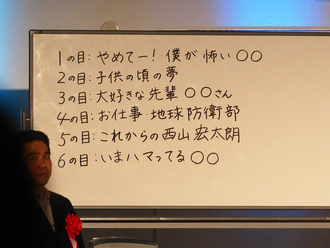 1の目：やめてー！僕が怖い○○
2の目：子供の頃の夢
3の目：大好きな先輩○○さん
4の目：お仕事・地球防衛部
5の目：これからの西山宏太朗
6の目：いまハマってる○○